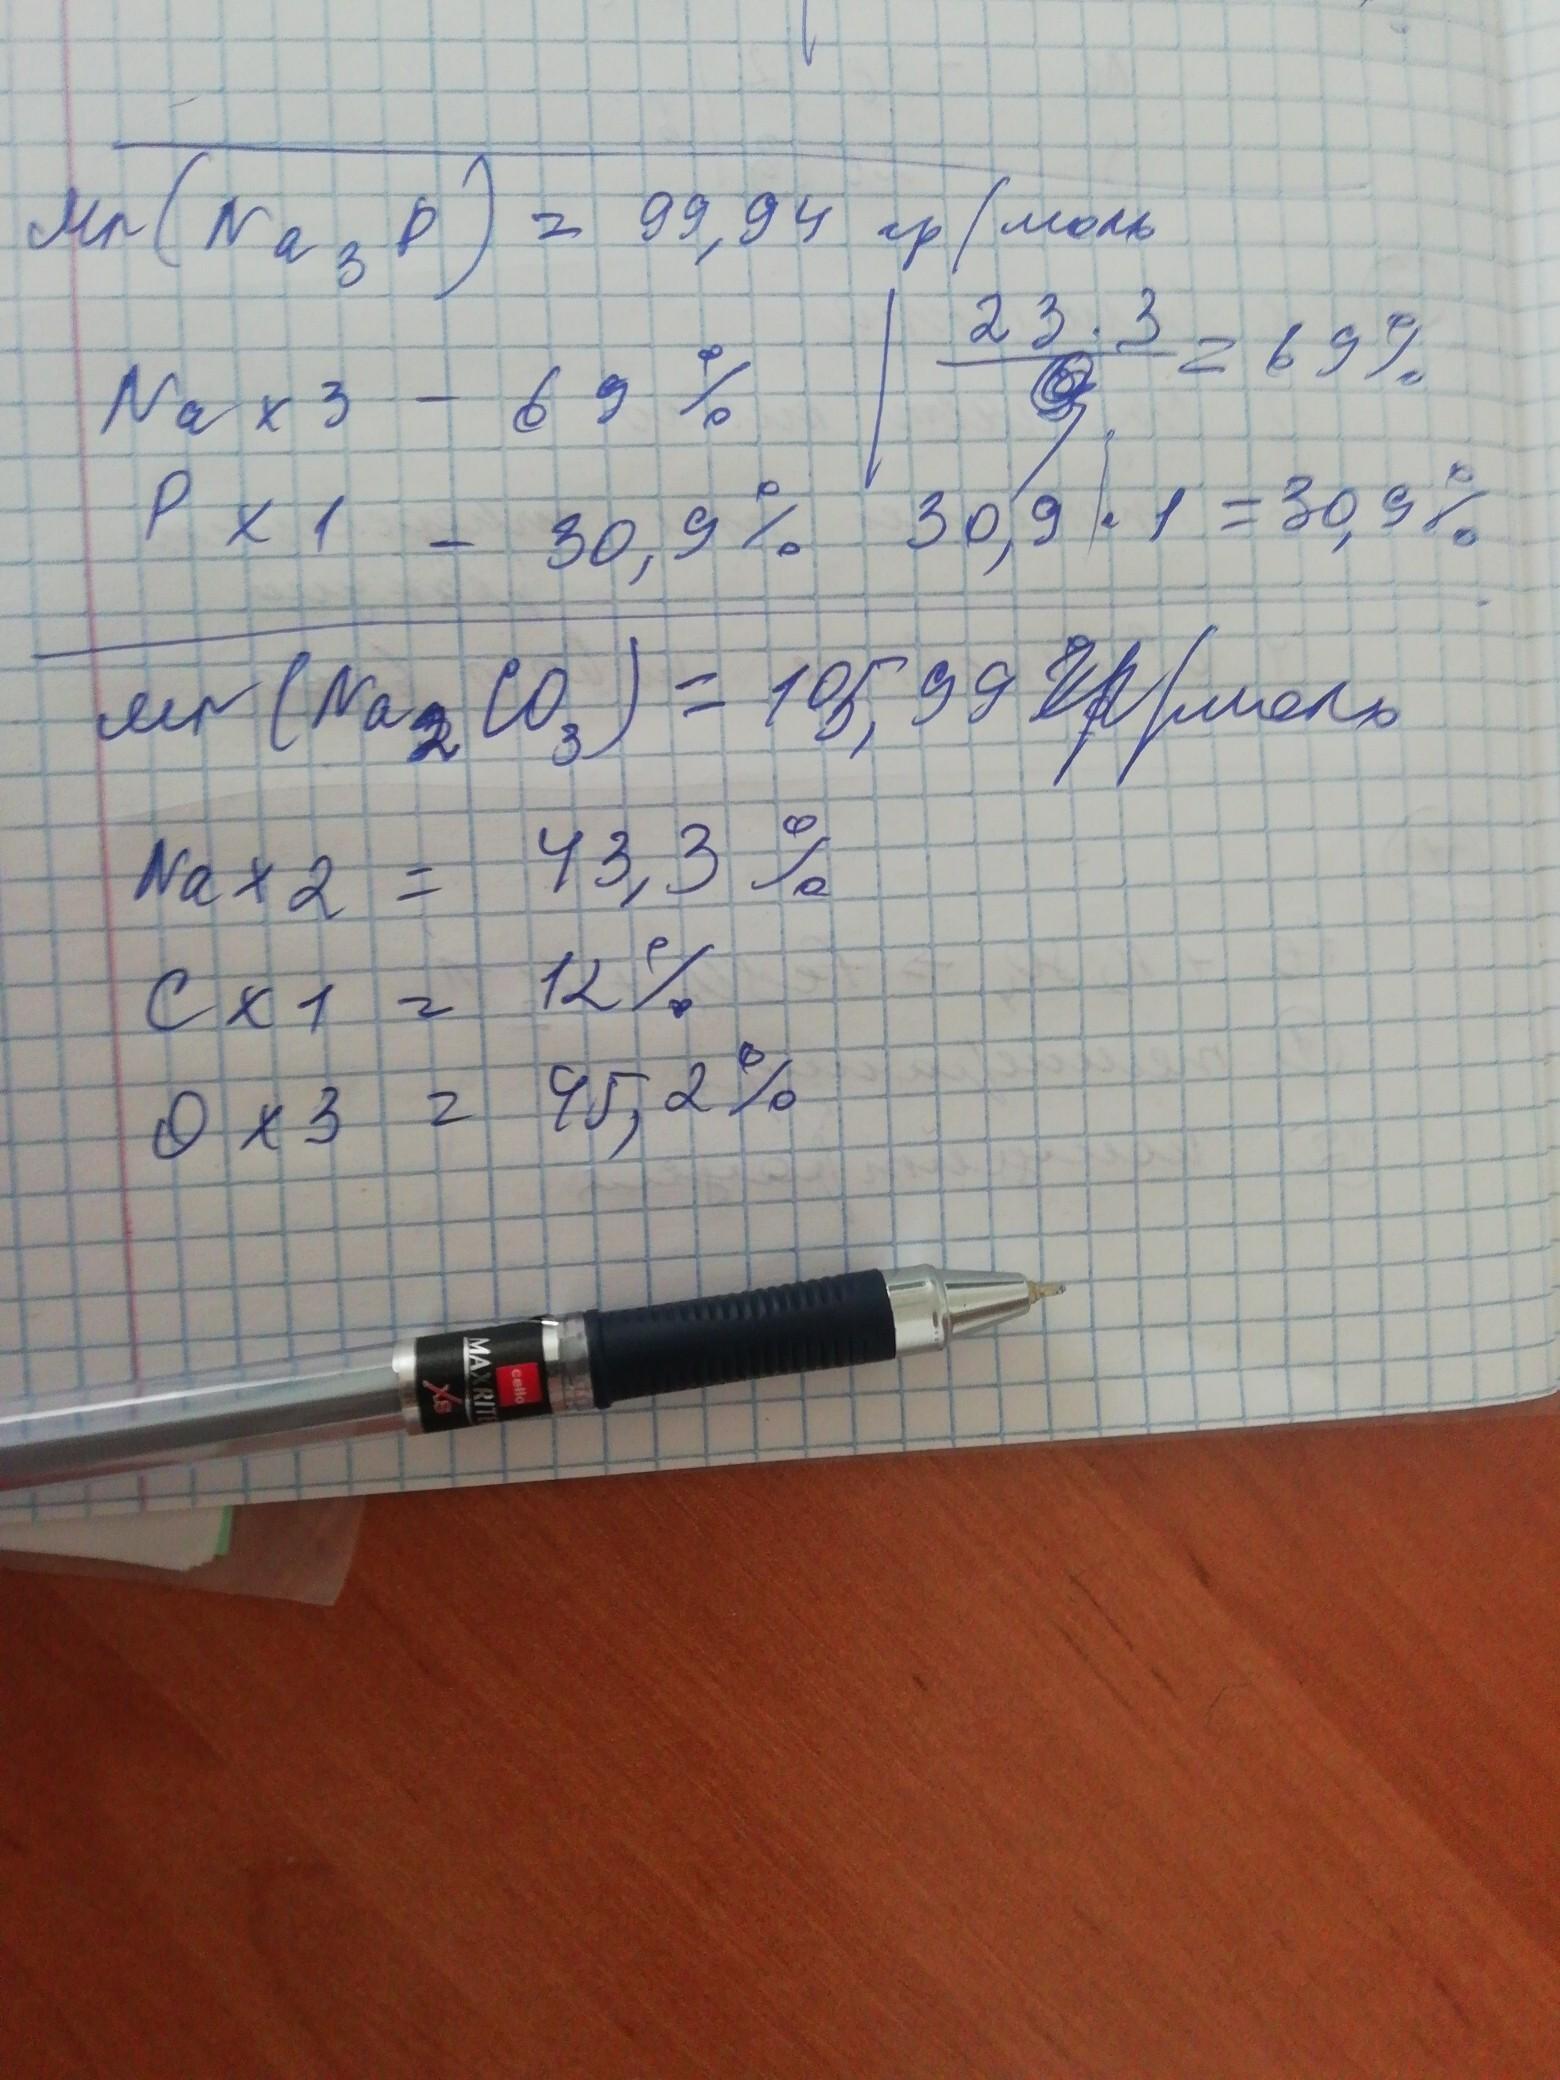 Mr(Na3P) = 99,94 гр/моль
Na x 3 - 69%
23 · 3 = 69%
P x 1 - 30,9%
30,9 · 1 = 30,9%
Mr(Na2CO3) = 105,99 гр/моль
Na x 2 = 43,3%
C x 1 = 12%
O x 3 = 45,2%
MAXRITE
XS
cello